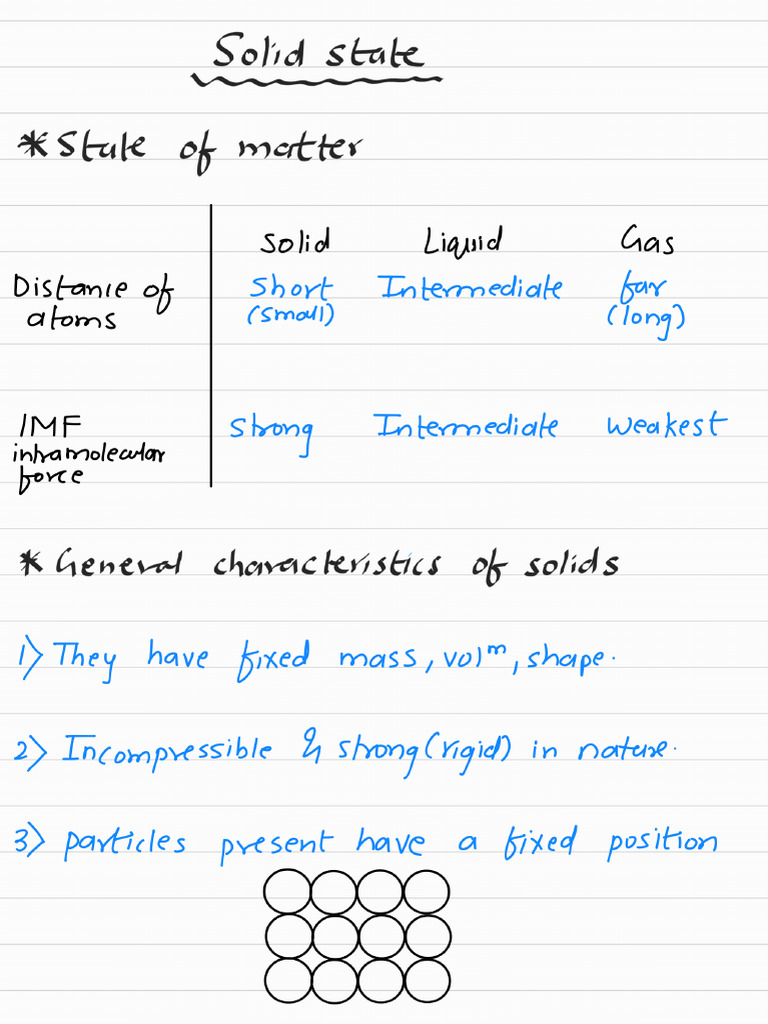 Solid state
*State of matter
Solid Liquid Gas
Distance of Short Intermediate far
atoms (small) (long)
IMF Strong Intermediate Weakest
intramolecular
force
* General characteristics of solids
1) They have fixed mass, volᵐ, shape.
2) Incompressible & strong (rigid) in nature.
3) particles present have a fixed position